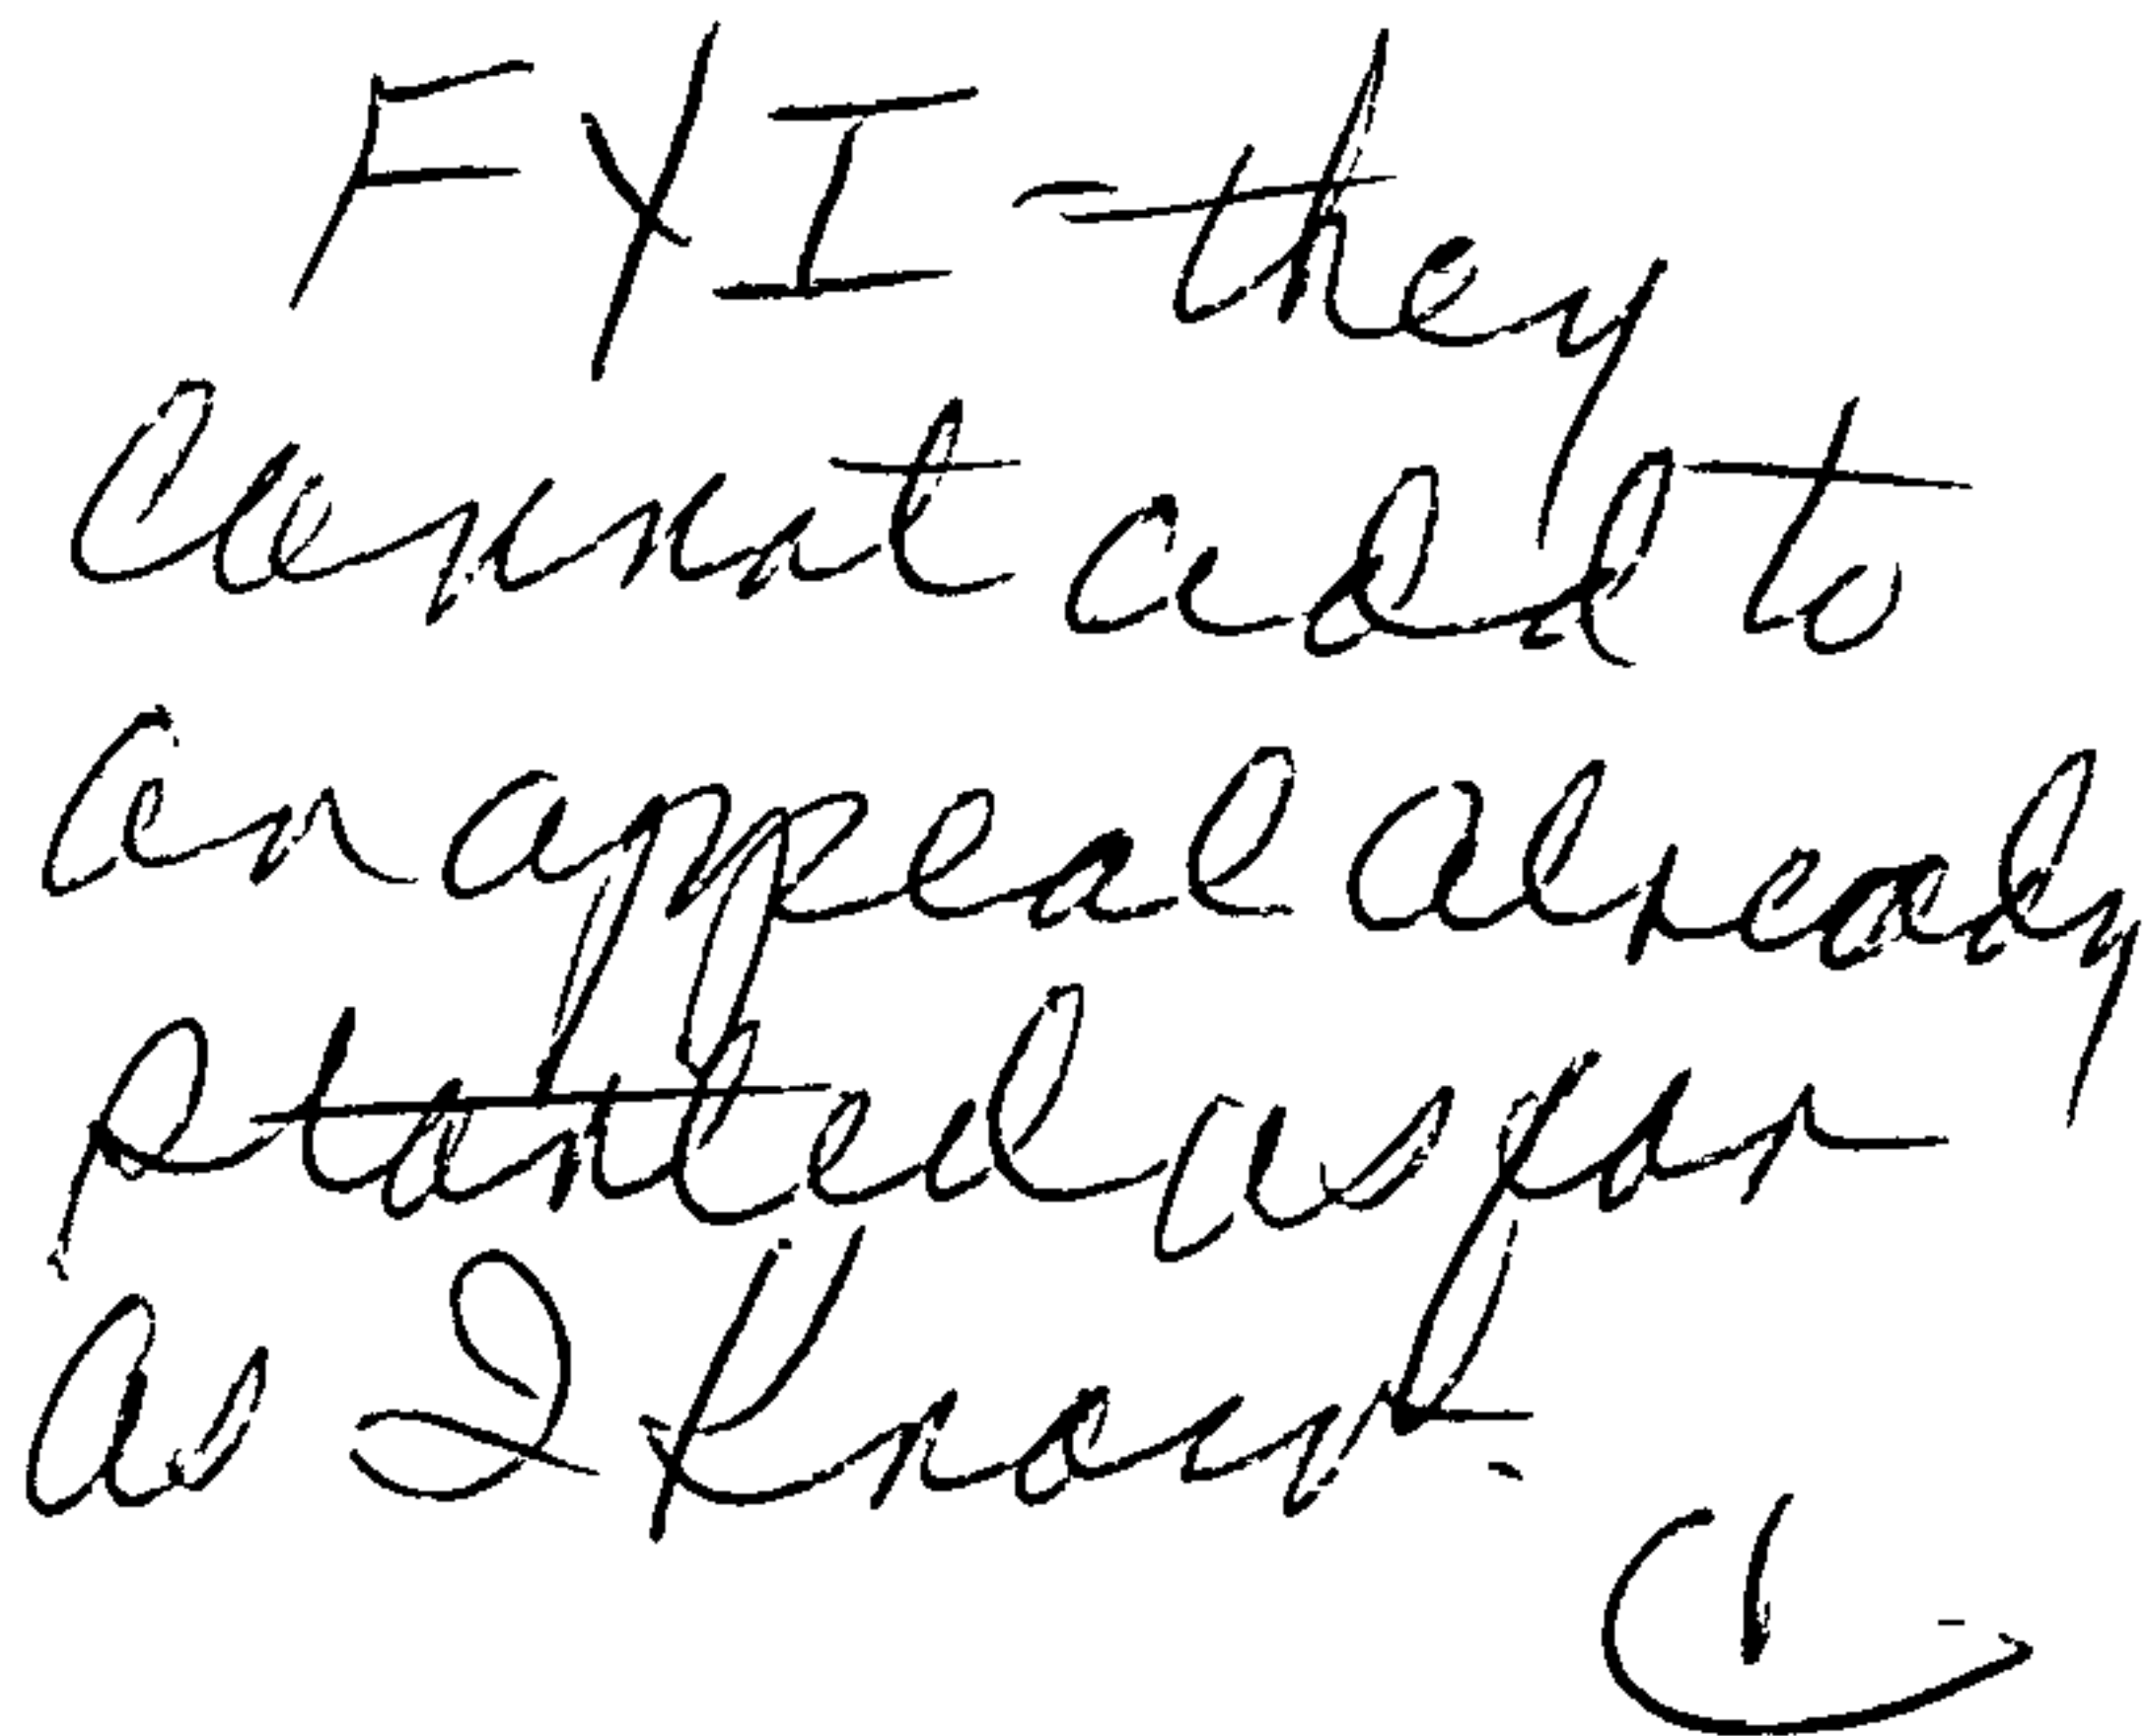 FYI - they
cannot add to
an appeal already
started as far
as I know -